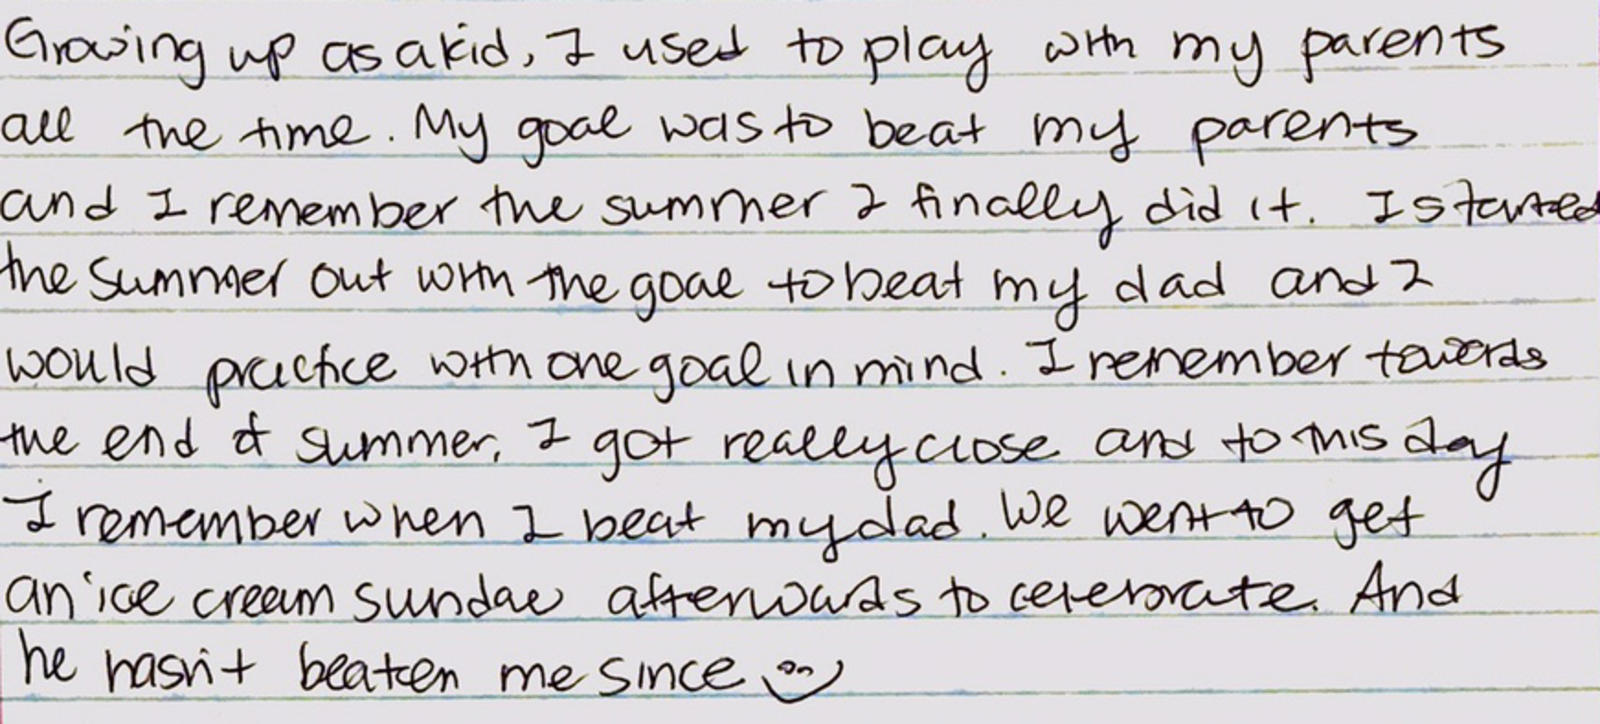 Growing up as a kid, I used to play with my parents
all the time. My goal was to beat my parents
and I remember the summer I finally did it. I started
the summer out with the goal to beat my dad and I
would practice with one goal in mind. I remember towards
the end of summer, I got really close and to this day
I remember when I beat my dad. We went to get
an ice cream sundae afterwards to celebrate. And
he hasn't beaten me since